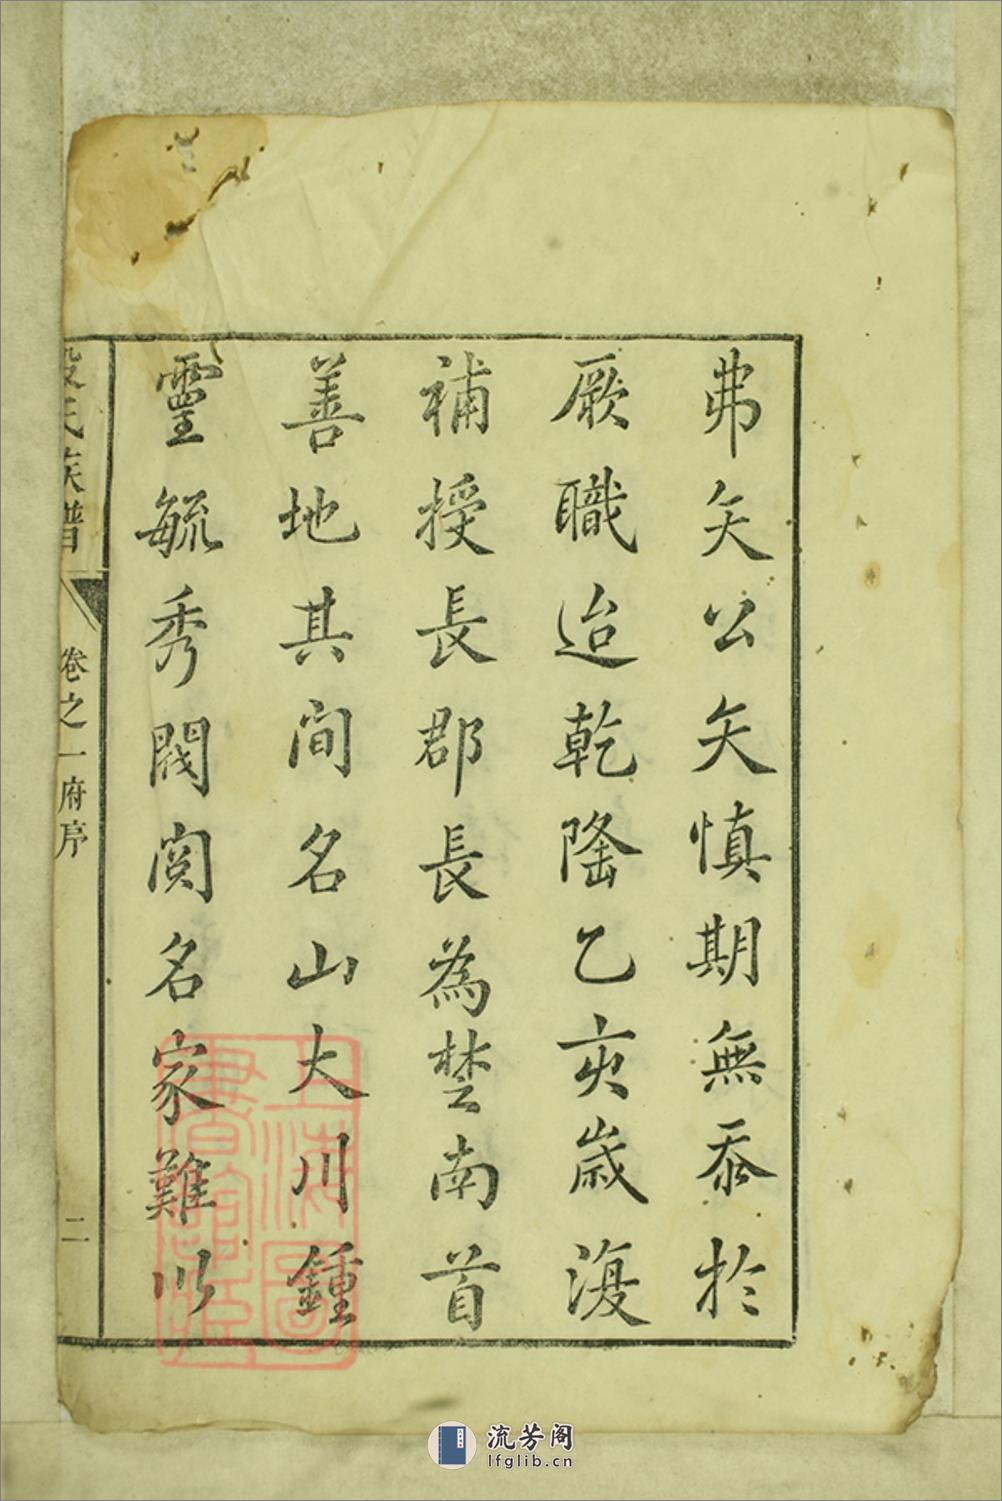 弗矢公矢慎期無忝於
厥職迨乾隆乙亥歲復
補授長郡長為楚南首
善地其間名山大川鍾
靈毓秀閥閱名家難以
段氏族譜
卷之一府序
二
上海圖書館藏
流芳阁
lfglib.cn